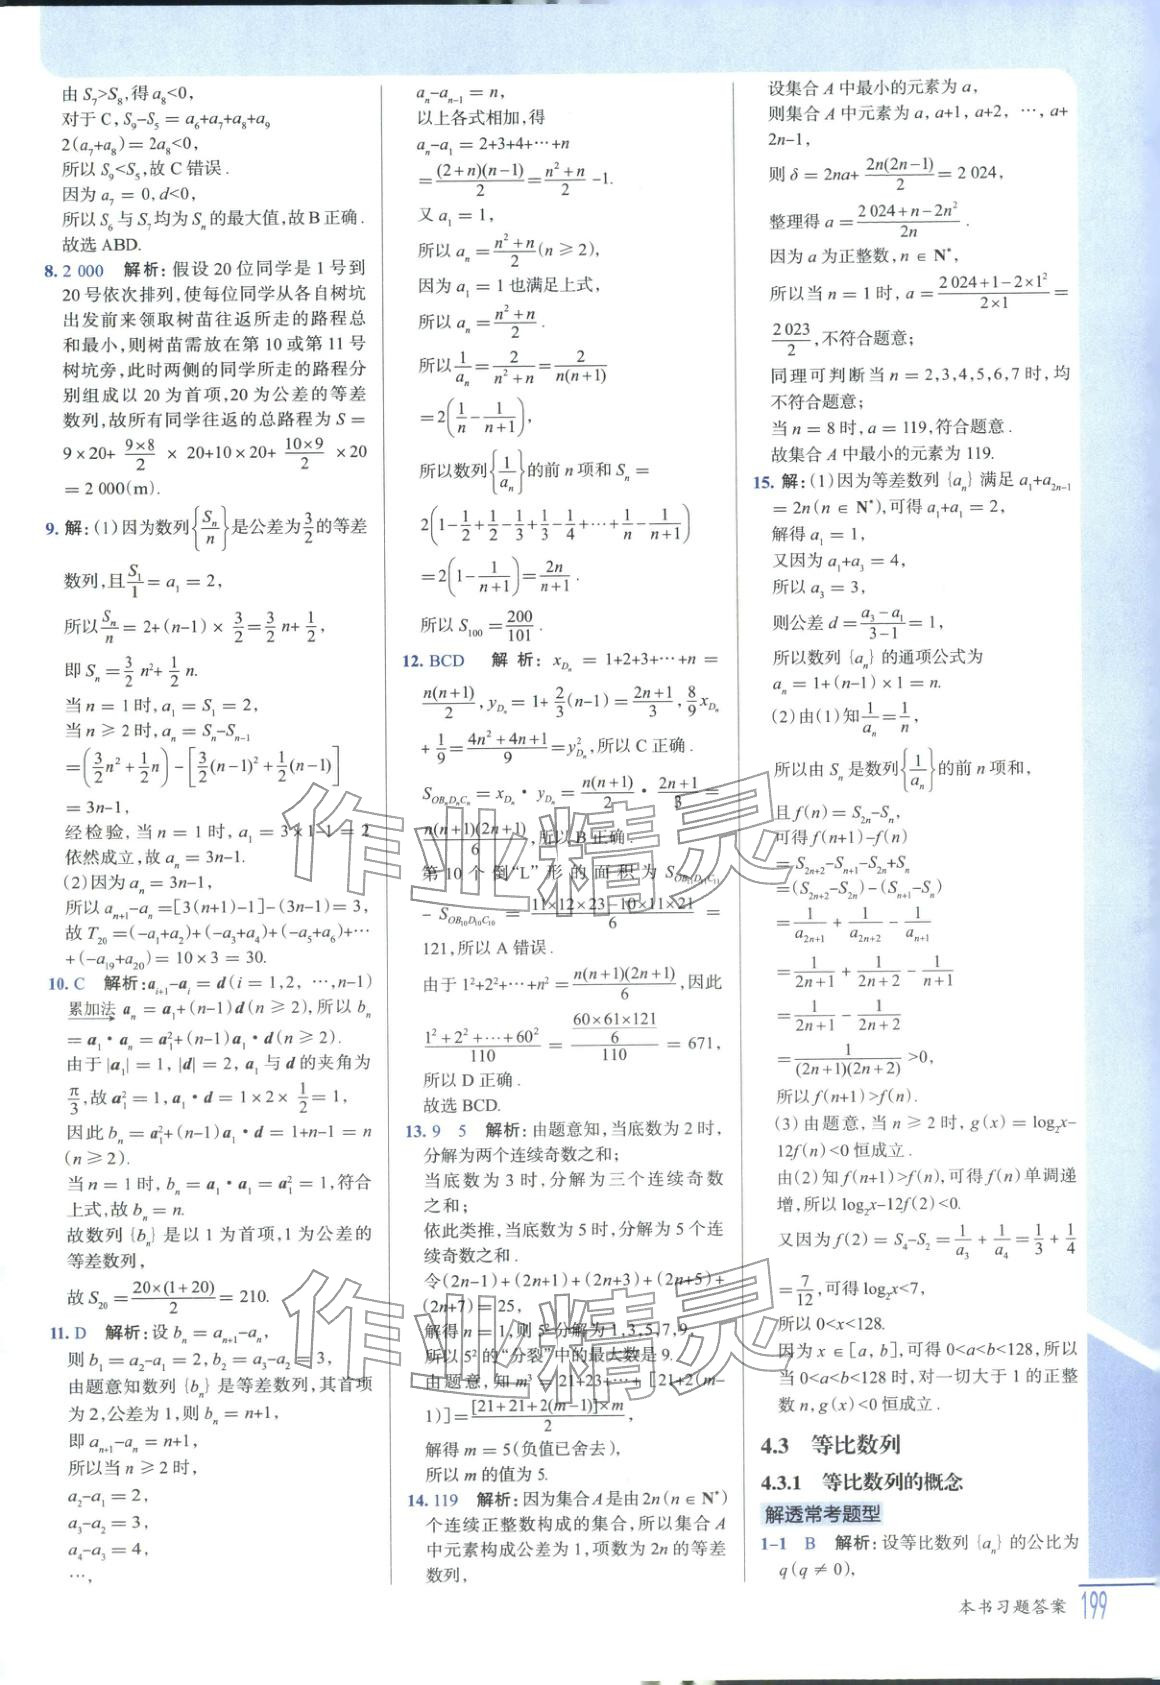 由 S₇>S₈,得 a₈<0,
对于 C, S₉-S₅ = a₆+a₇+a₈+a₉
2(a₇+a₈) = 2a₈<0,
所以 S₉<S₅,故 C 错误.
因为 a₇ = 0, d<0,
所以 S₆ 与 S₇ 均为 Sₙ 的最大值,故 B 正确.
故选 ABD.
8. 2 000 解析:假设 20 位同学是 1 号到
20 号依次排列,使每位同学从各自树坑
出发前来领取树苗往返所走的路程总
和最小,则树苗需放在第 10 或第 11 号
树坑旁,此时两侧的同学所走的路程分
别组成以 20 为首项,20 为公差的等差
数列,故所有同学往返的总路程为 S =
9×20+ (9×8)/2 × 20+10×20+ (10×9)/2 ×20
= 2 000(m).
9. 解:(1)因为数列{Sₙ/n}是公差为3/2的等差
数列,且S₁/1 = a₁ = 2,
所以Sₙ/n = 2+(n-1)× 3/2 = 3/2 n+ 1/2,
即 Sₙ = 3/2 n²+ 1/2 n.
当 n = 1 时, a₁ = S₁ = 2,
当 n ≥ 2 时, aₙ = Sₙ-Sₙ₋₁
=(3/2 n²+1/2 n)-[3/2 (n-1)²+1/2 (n-1)]
= 3n-1,
经检验,当 n = 1 时, a₁ = 3×1-1 = 2
依然成立,故 aₙ = 3n-1.
(2)因为 aₙ = 3n-1,
所以 aₙ₊₁-aₙ =[3(n+1)-1]-(3n-1)= 3,
故 T₂₀ =(-a₁+a₂)+(-a₃+a₄)+(-a₅+a₆)+⋯
+(-a₁₉+a₂₀)= 10×3 = 30.
10. C 解析:aᵢ₊₁-aᵢ = d(i = 1,2, ⋯,n-1)
累加法 aₙ = a₁+(n-1)d(n ≥ 2),所以 bₙ
= a₁·aₙ = a₁²+(n-1)a₁·d(n ≥ 2).
由于|a₁| = 1, |d| = 2, a₁ 与 d 的夹角为
π/3,故 a₁² = 1, a₁·d = 1×2× 1/2 = 1,
因此 bₙ = a₁²+(n-1)a₁·d = 1+n-1 = n
(n ≥ 2).
当 n = 1 时, bₙ = a₁·a₁ = a₁² = 1,符合
上式,故 bₙ = n.
故数列 {bₙ} 是以 1 为首项,1 为公差的
等差数列,
故 S₂₀ = 20×(1+20)/2 = 210.
11. D 解析:设 bₙ = aₙ₊₁-aₙ,
则 b₁ = a₂-a₁ = 2, b₂ = a₃-a₂ = 3,
由题意知数列 {bₙ} 是等差数列,其首项
为 2,公差为 1,则 bₙ = n+1,
即 aₙ₊₁-aₙ = n+1,
所以当 n ≥ 2 时,
a₂-a₁ = 2,
a₃-a₂ = 3,
a₄-a₃ = 4,
⋯,
aₙ-aₙ₋₁ = n,
以上各式相加,得
aₙ-a₁ = 2+3+4+⋯+n
= (2+n)(n-1)/2 = (n²+n)/2 -1.
又 a₁ = 1,
所以 aₙ = (n²+n)/2 (n ≥ 2),
因为 a₁ = 1 也满足上式,
所以 aₙ = (n²+n)/2.
所以 1/aₙ = 2/(n²+n) = 2/(n(n+1))
=2(1/n - 1/(n+1)),
所以数列{1/aₙ}的前 n 项和 Sₙ =
2(1-1/2+1/2-1/3+1/3-1/4+⋯+1/n-1/(n+1))
=2(1-1/(n+1))=2n/(n+1).
所以 S₁₀₀ = 200/101.
12. BCD 解析: x_{Dₙ} = 1+2+3+⋯+n =
n(n+1)/2, y_{Dₙ} = 1+ 2/3 (n-1) = (2n+1)/3, 8/9 x_{Dₙ}
+ 1/9 = (4n²+4n+1)/9 = y²_{Dₙ},所以 C 正确.
S_{OBₙDₙCₙ} = x_{Dₙ}·y_{Dₙ} = n(n+1)/2 · (2n+1)/3 =
n(n+1)(2n+1)/6,所以 B 正确.
第 10 个倒“L”形的面积为 S_{OB₁₁D₁₁C₁₁}
- S_{OB₁₀D₁₀C₁₀} = (11×12×23-10×11×21)/6 =
121,所以 A 错误.
由于 1²+2²+⋯+n² = n(n+1)(2n+1)/6,因此
(1²+2²+⋯+60²)/110 = (60×61×121/6)/110 = 671,
所以 D 正确.
故选 BCD.
13. 9 5 解析:由题意知,当底数为 2 时,
分解为两个连续奇数之和;
当底数为 3 时,分解为三个连续奇数
之和;
依此类推,当底数为 5 时,分解为 5 个连
续奇数之和.
令(2n-1)+(2n+1)+(2n+3)+(2n+5)+
(2n+7)= 25,
解得 n = 1,则 5² 分解为 1,3,5,7,9,
所以 5² 的“分裂”中的最大数是 9.
由题意,知 m³ = 21+23+⋯+[21+2(m-
1)]= [21+21+2(m-1)]×m/2,
解得 m = 5(负值已舍去),
所以 m 的值为 5.
14. 119 解析:因为集合 A 是由 2n(n ∈ N*)
个连续正整数构成的集合,所以集合 A
中元素构成公差为 1,项数为 2n 的等差
数列,
设集合 A 中最小的元素为 a,
则集合 A 中元素为 a, a+1, a+2, ⋯, a+
2n-1,
则 δ = 2na+ 2n(2n-1)/2 = 2 024,
整理得 a = (2 024+n-2n²)/2n.
因为 a 为正整数, n ∈ N*,
所以当 n = 1 时, a = (2 024+1-2×1²)/(2×1) =
2 023/2,不符合题意;
同理可判断当 n = 2,3,4,5,6,7 时,均
不符合题意;
当 n = 8 时, a = 119,符合题意.
故集合 A 中最小的元素为 119.
15. 解:(1)因为等差数列 {aₙ} 满足 a₁+a₂ₙ₋₁
= 2n(n ∈ N*),可得 a₁+a₁ = 2,
解得 a₁ = 1,
又因为 a₁+a₃ = 4,
所以 a₃ = 3,
则公差 d = (a₃-a₁)/(3-1) = 1,
所以数列 {aₙ} 的通项公式为
aₙ = 1+(n-1)×1 = n.
(2)由(1)知 1/aₙ = 1/n,
所以由 Sₙ 是数列{1/aₙ}的前 n 项和,
且 f(n) = S₂ₙ-Sₙ,
可得 f(n+1)-f(n)
=S₂ₙ₊₂-Sₙ₊₁-S₂ₙ+Sₙ
=(S₂ₙ₊₂-S₂ₙ)-(Sₙ₊₁-Sₙ)
= 1/a₂ₙ₊₁ + 1/a₂ₙ₊₂ - 1/aₙ₊₁
= 1/(2n+1) + 1/(2n+2) - 1/(n+1)
= 1/(2n+1) - 1/(2n+2)
= 1/((2n+1)(2n+2)) >0,
所以 f(n+1)>f(n).
(3)由题意,当 n ≥ 2 时, g(x) = log₂x-
12f(n)<0 恒成立.
由(2)知 f(n+1)>f(n),可得 f(n)单调递
增,所以 log₂x-12f(2)<0.
又因为 f(2) = S₄-S₂ = 1/a₃ + 1/a₄ = 1/3 + 1/4
= 7/12,可得 log₂x<7,
所以 0<x<128.
因为 x ∈ [a, b],可得 0<a<b<128,所以
当 0<a<b<128 时,对一切大于 1 的正整
数 n, g(x)<0 恒成立.
4.3 等比数列
4.3.1 等比数列的概念
解透常考题型
1-1 B 解析:设等比数列 {aₙ} 的公比为
q(q ≠ 0),
本书习题答案 199
作业精灵
作业精灵